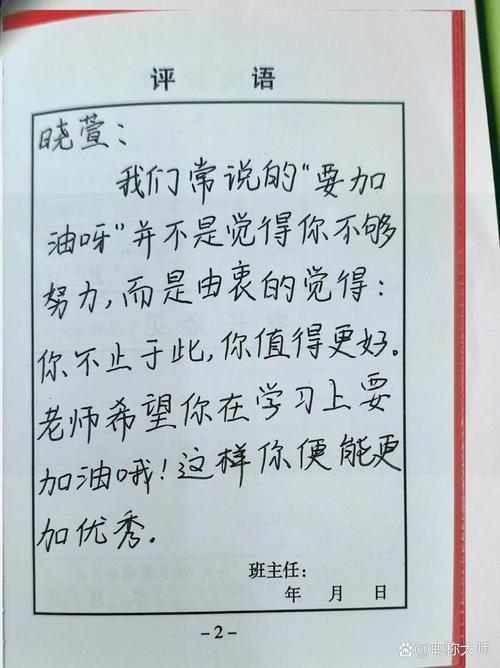 评 语
晓萱：
我们常说的“要加
油呀”并不是觉得你不够
努力，而是由衷的觉得：
你不止于此，你值得更好。
老师希望你在学习上要
加油哦！这样你便能更
加优秀。
班主任：
年 月 日
-2-
@职称大师